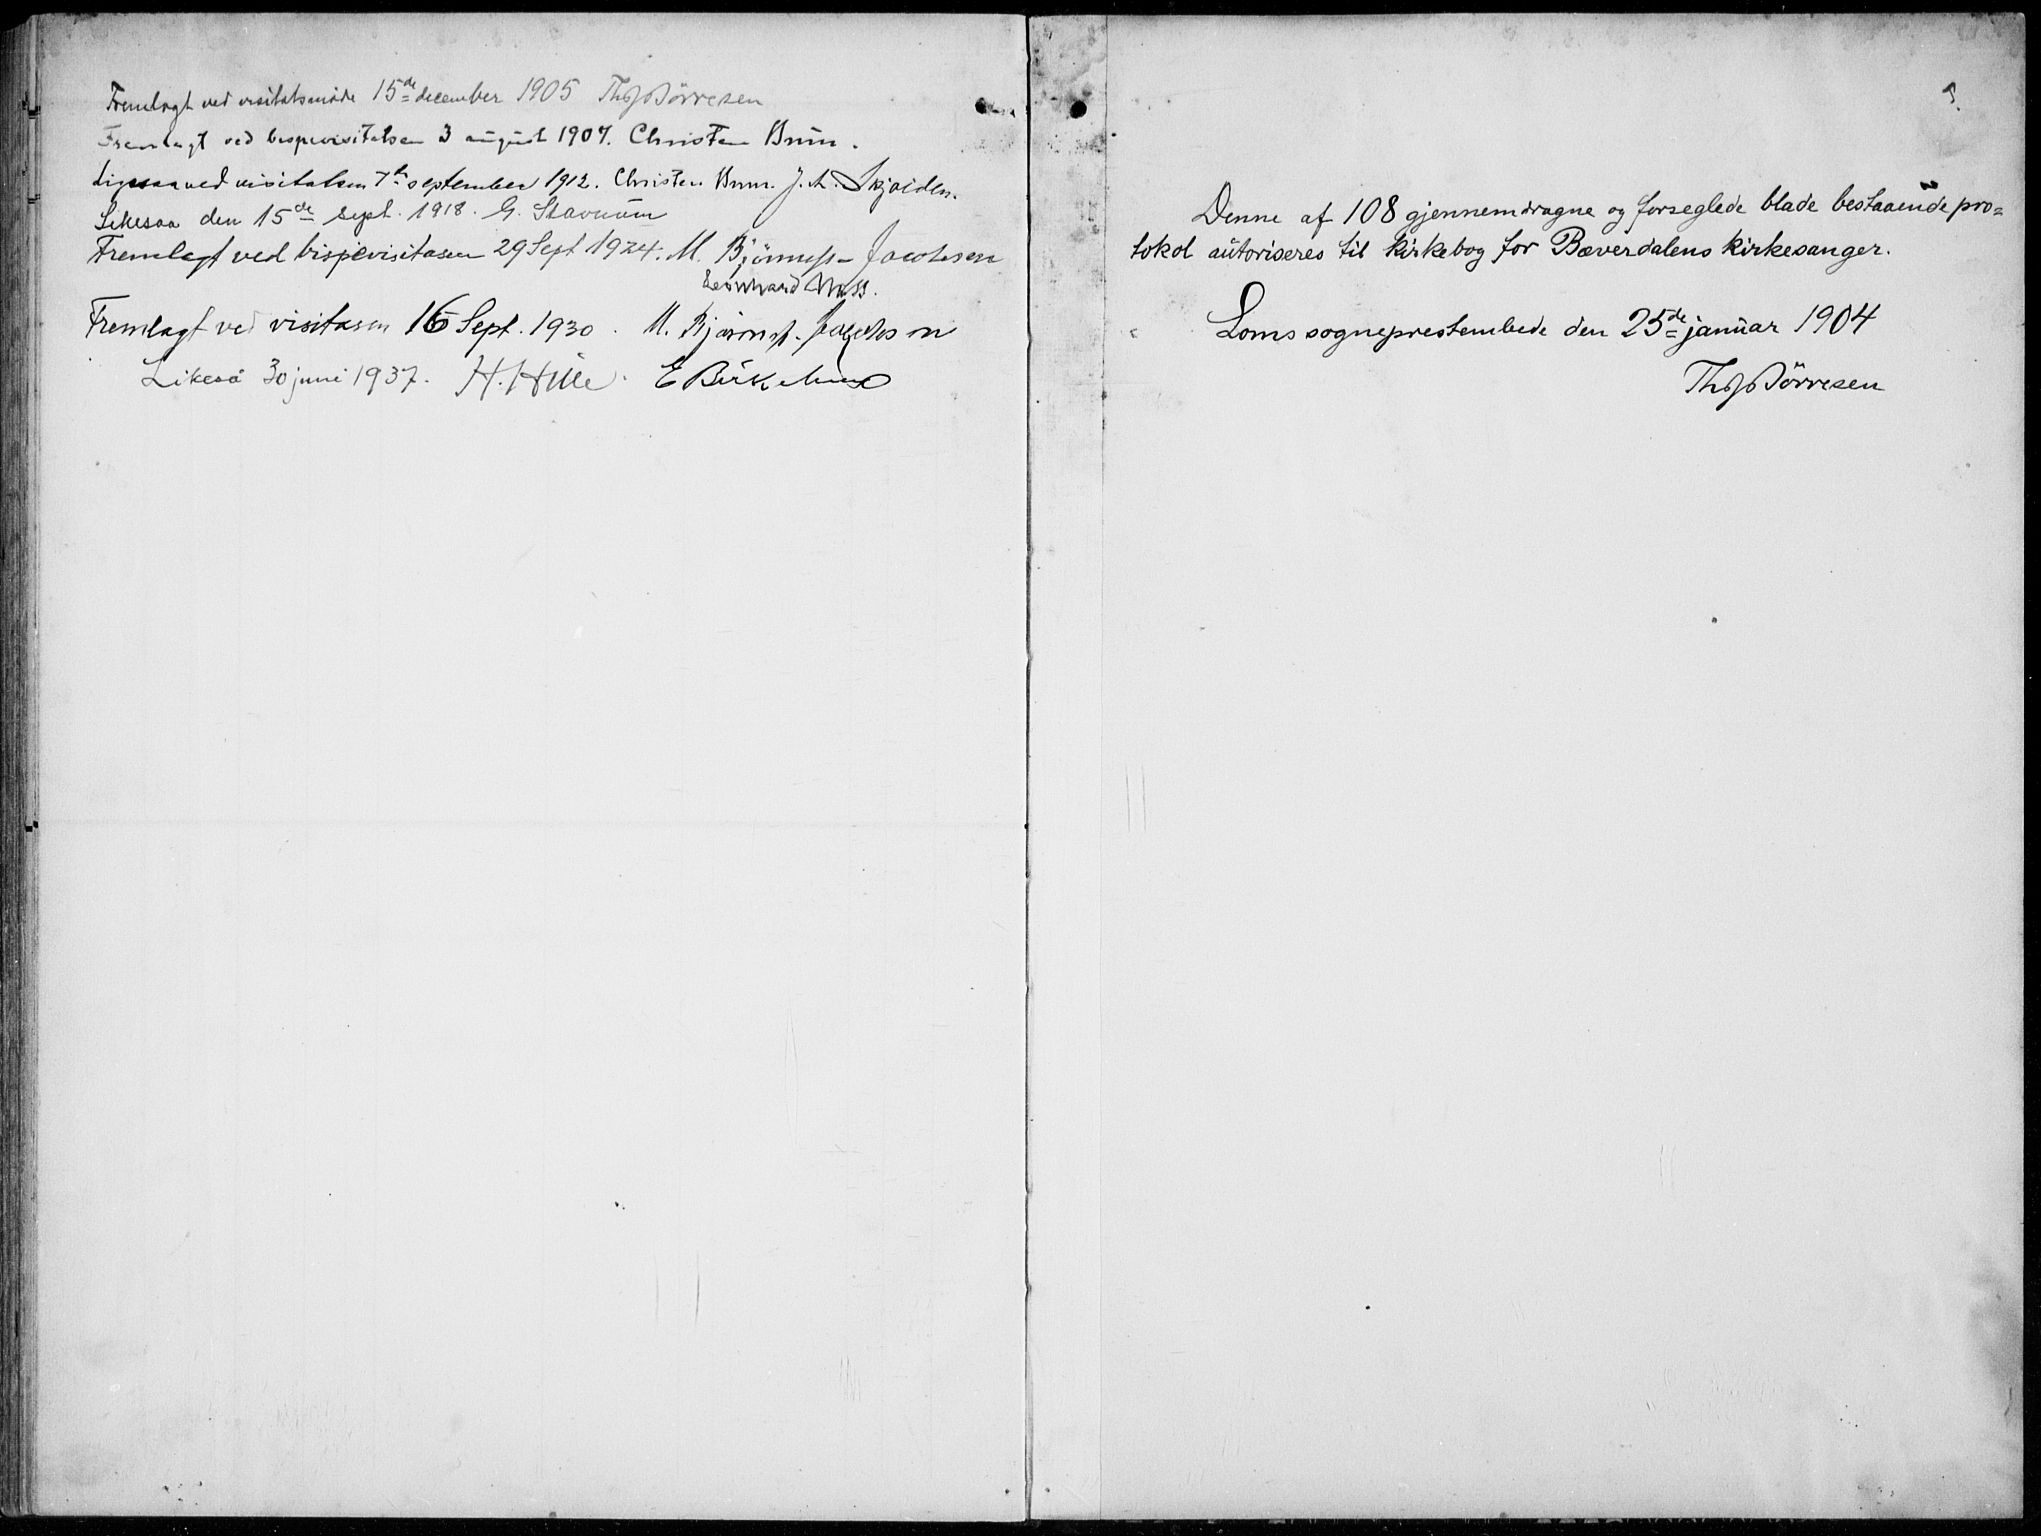 Fremlagt ved visitatsmøde 15de december 1905 Th J Børresen
Fremlagt ved bispevisitatsen 3 august 1907. Christen Brun.
Ligesaa ved visitatsen 7de september 1912. Christen Brun. J. A. Skjölden.
Likesaa den 15de sept. 1918. G. Stavnum
Fremlagt ved bispevisitasen 29 Sept 1924. M. Björnnes-Jacobsen
Leonhard Næss.
Fremlagt ved visitasen 16 Sept. 1930. M. Bjørnnes-Jacobsen
Likeså 30 juni 1937. H. Hille. E Birkelund
Denne af 108 gjennemdragne og forseglede blade bestaaende pro=
tokol autoriseres til kirkebog for Bæverdalens kirkesanger.
Loms sogneprestembede den 25de januar 1904
Th J Børresen